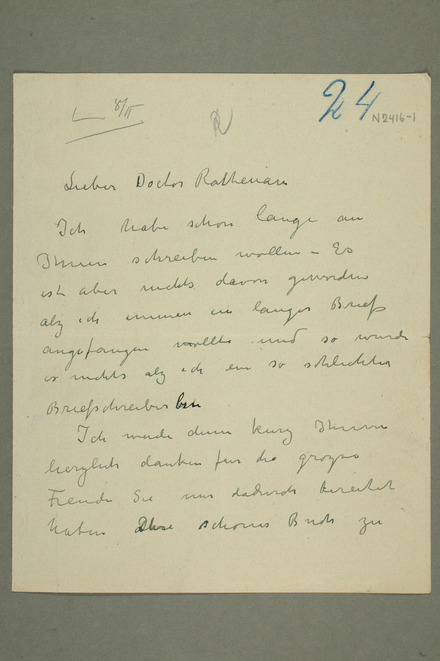 L 8/II
N
24
N2416-1
Lieber Doctor Rathenau
Ich habe schon lange an
Ihnen schreiben wollen – Es
ist aber nichts davon geworden
alz ich immer ein langer Brief
angefangen wollte und so wurde
es nichts alz ich ein so schlechter
Briefschreiber bin
Ich werde denn kurz Ihnen
herzlich danken für die groze
Freude Sie uns dadurch bereitet
haben Ihre schönes Buch zu